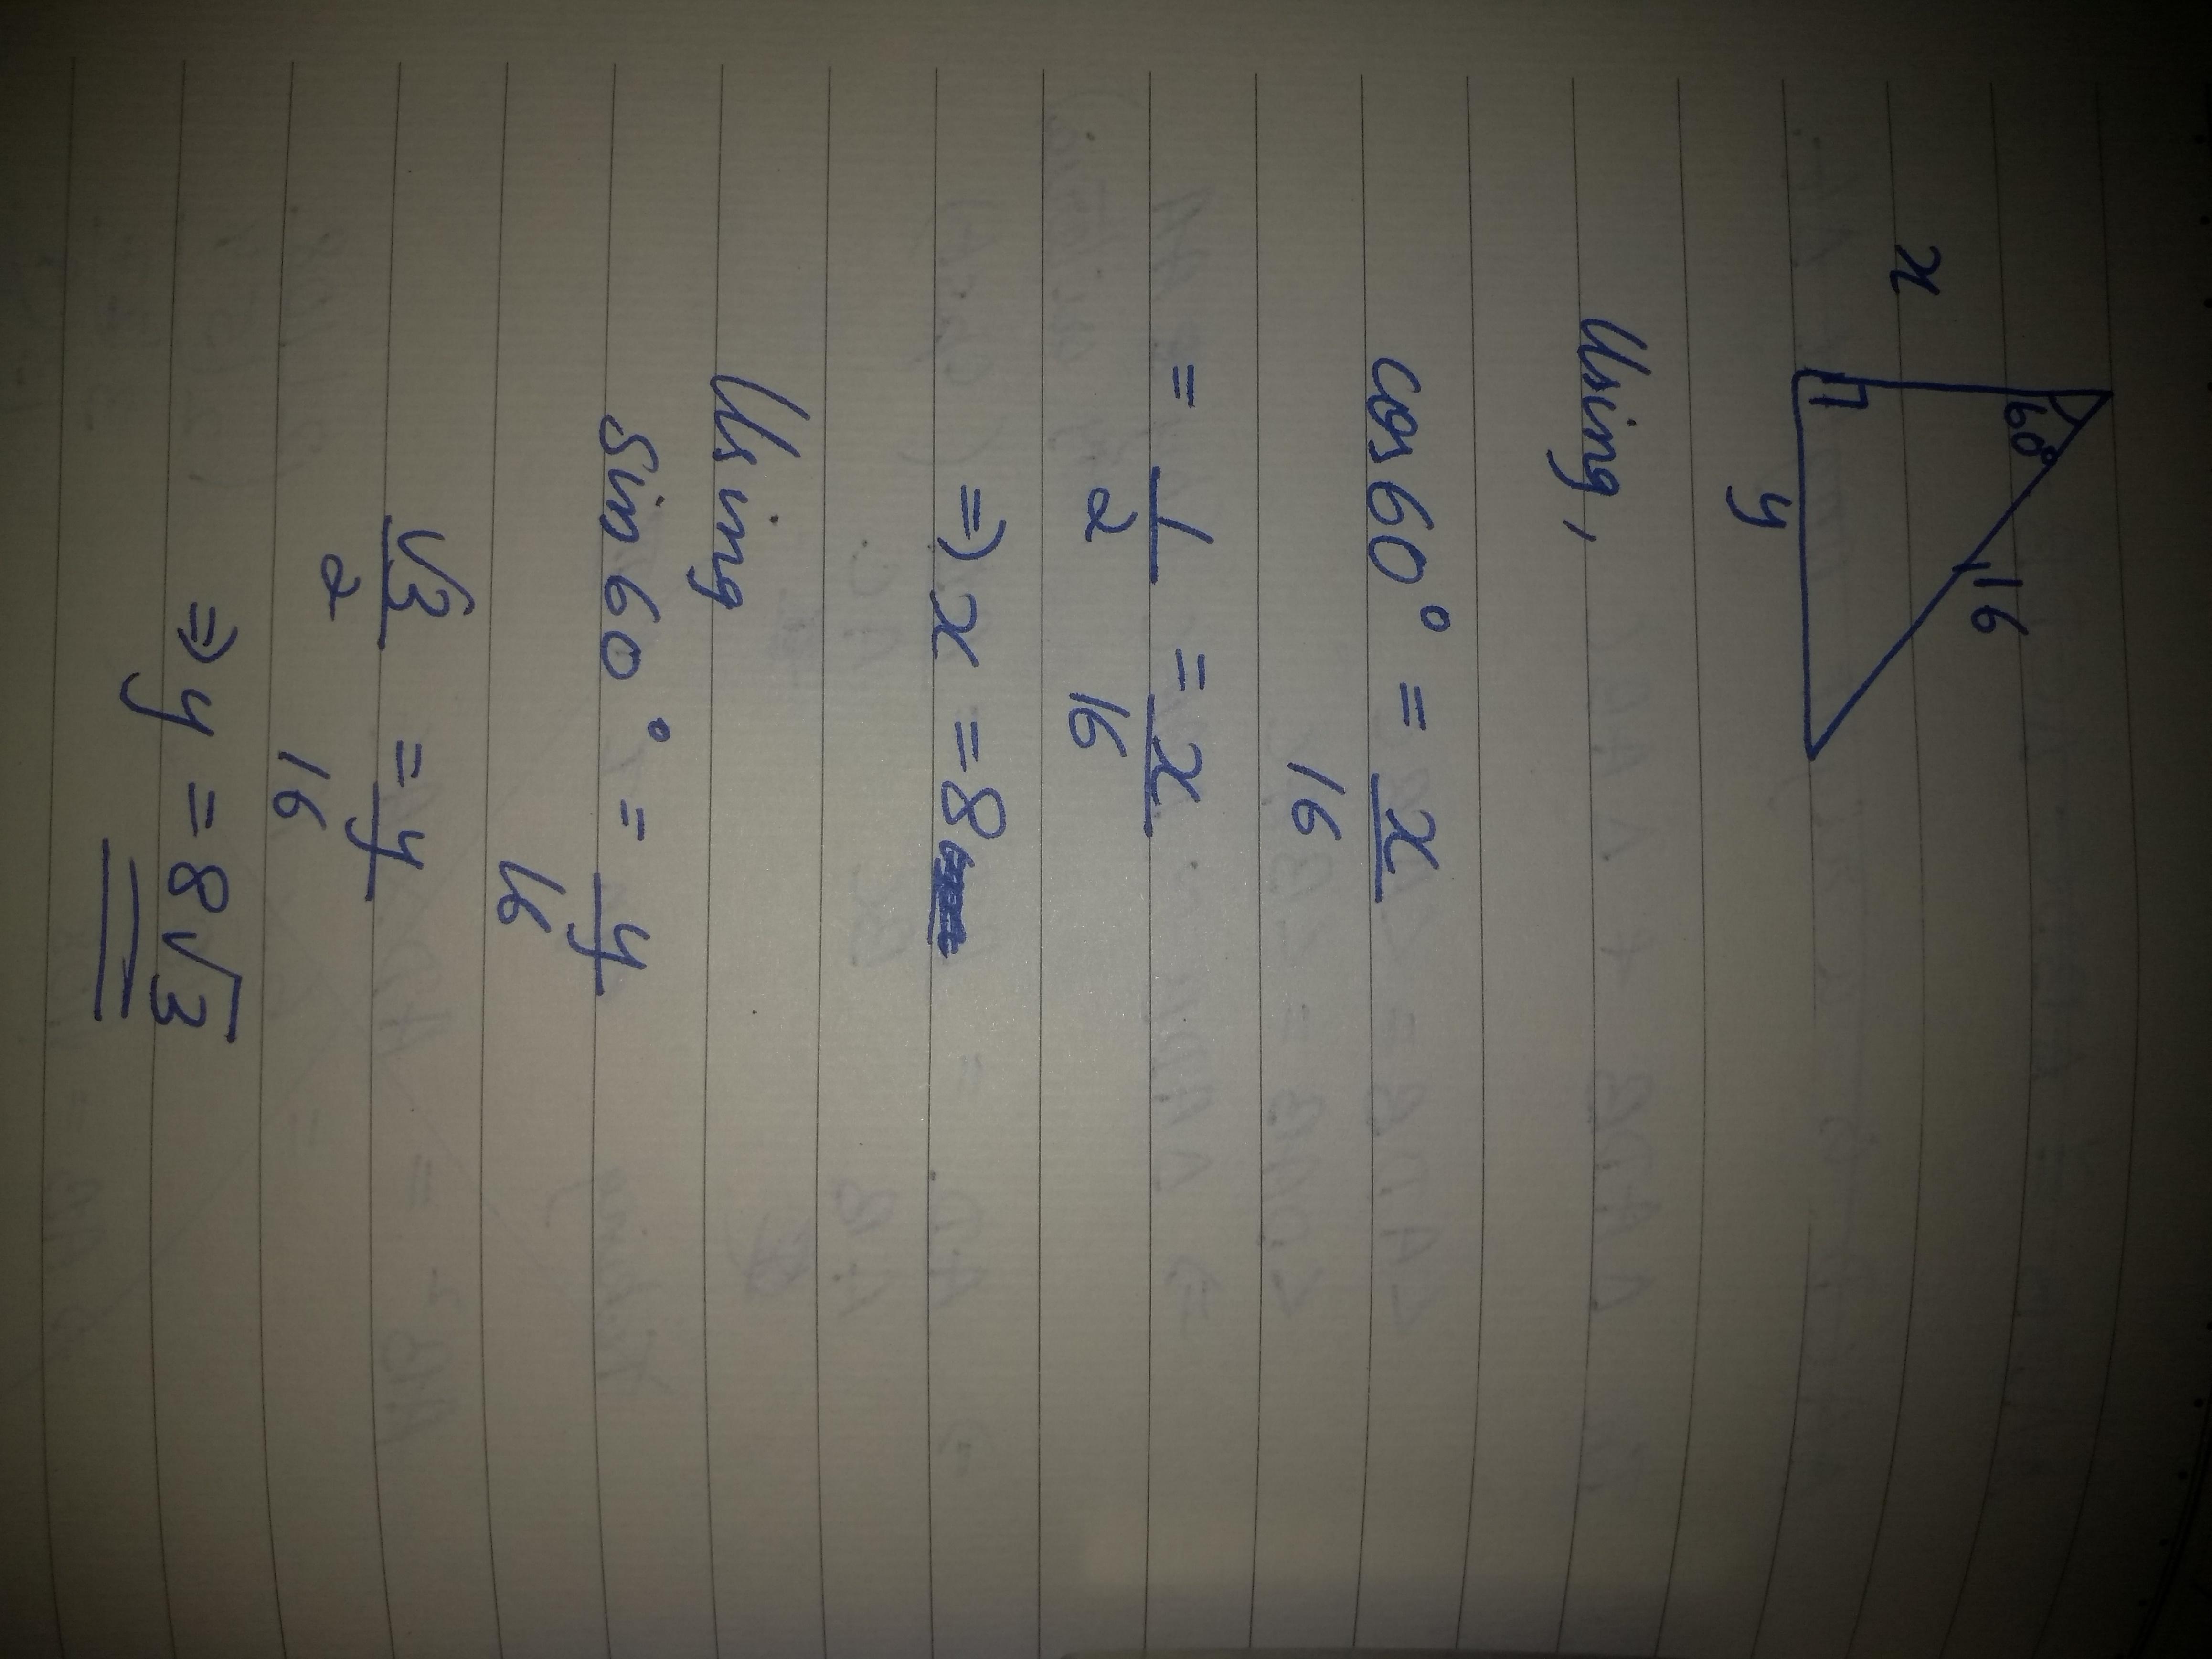 x
60°
16
y
Using,
cos 60° = x/16
= 1/2 = x/16
=) x = 8
Using
Sin 60° = y/16
√3/2 = y/16
=) y = 8√3